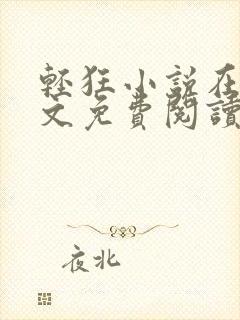 輕狂小說在
文免費閱讀
夜北